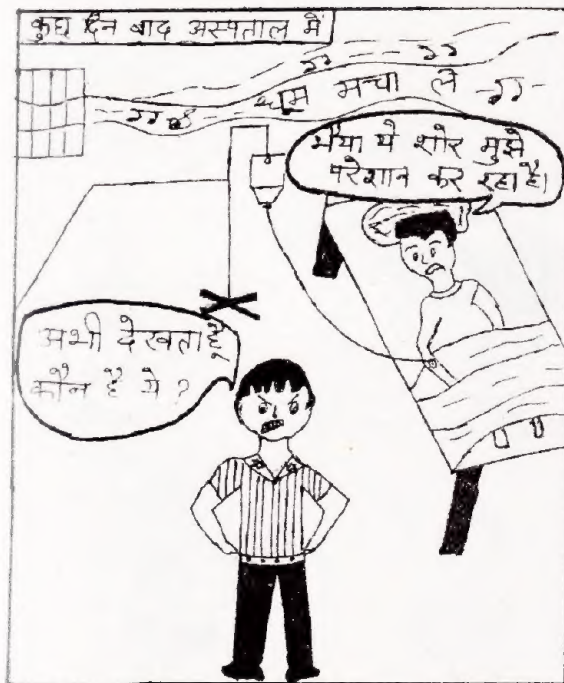 कुछ दिन बाद अस्पताल में
धूम मचा ले
भैया ये शोर मुझे
परेशान कर रहा है।
अभी देखता हूँ
कौन है ये ?